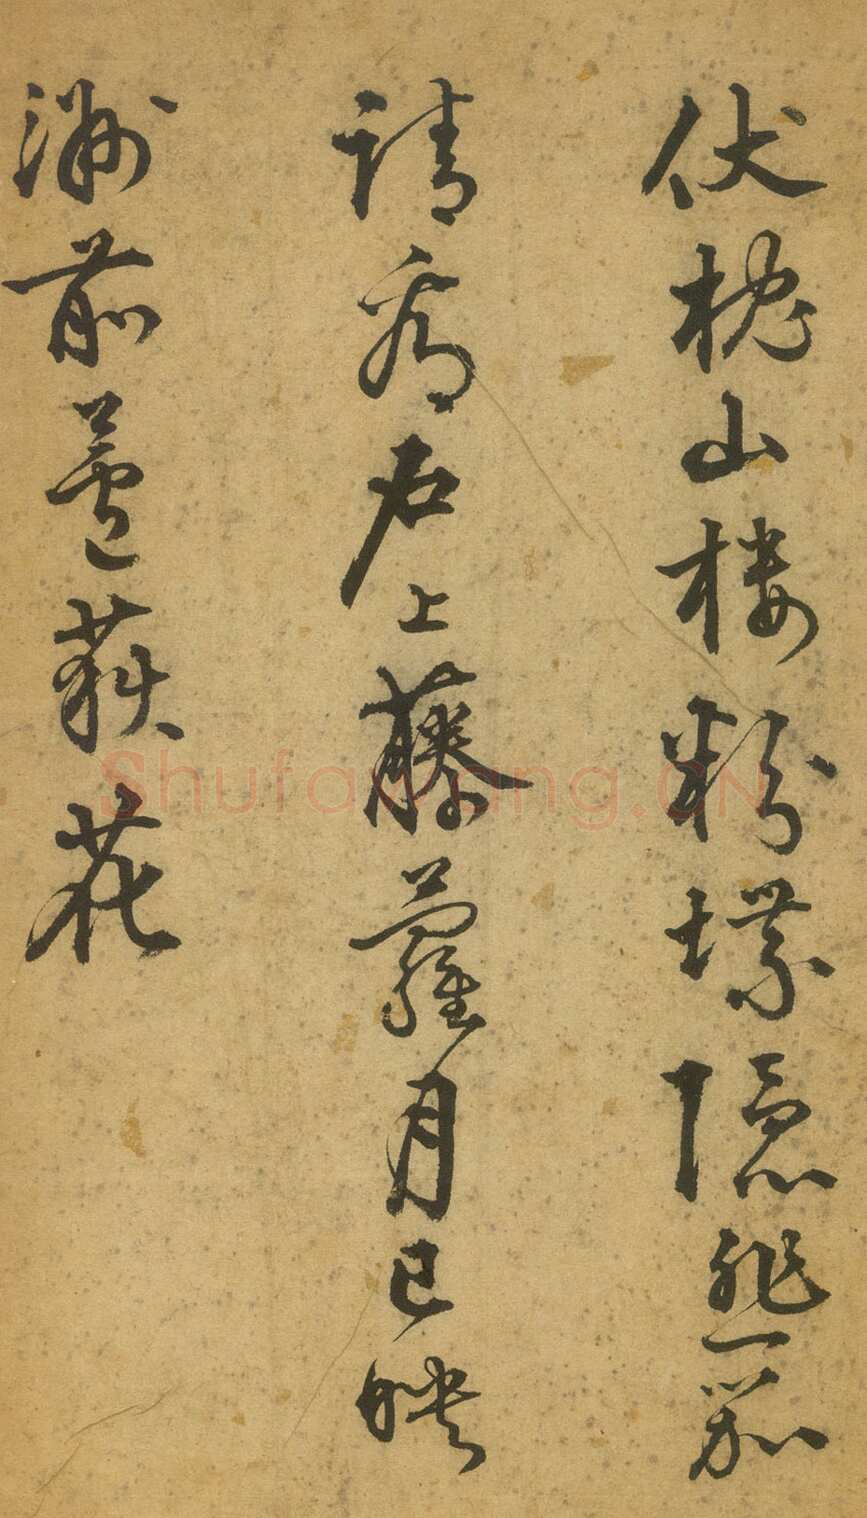 伏枕山楼粉堞隐悲笳
请看石上藤萝月已映
洲前芦荻花
Shufawang.CN